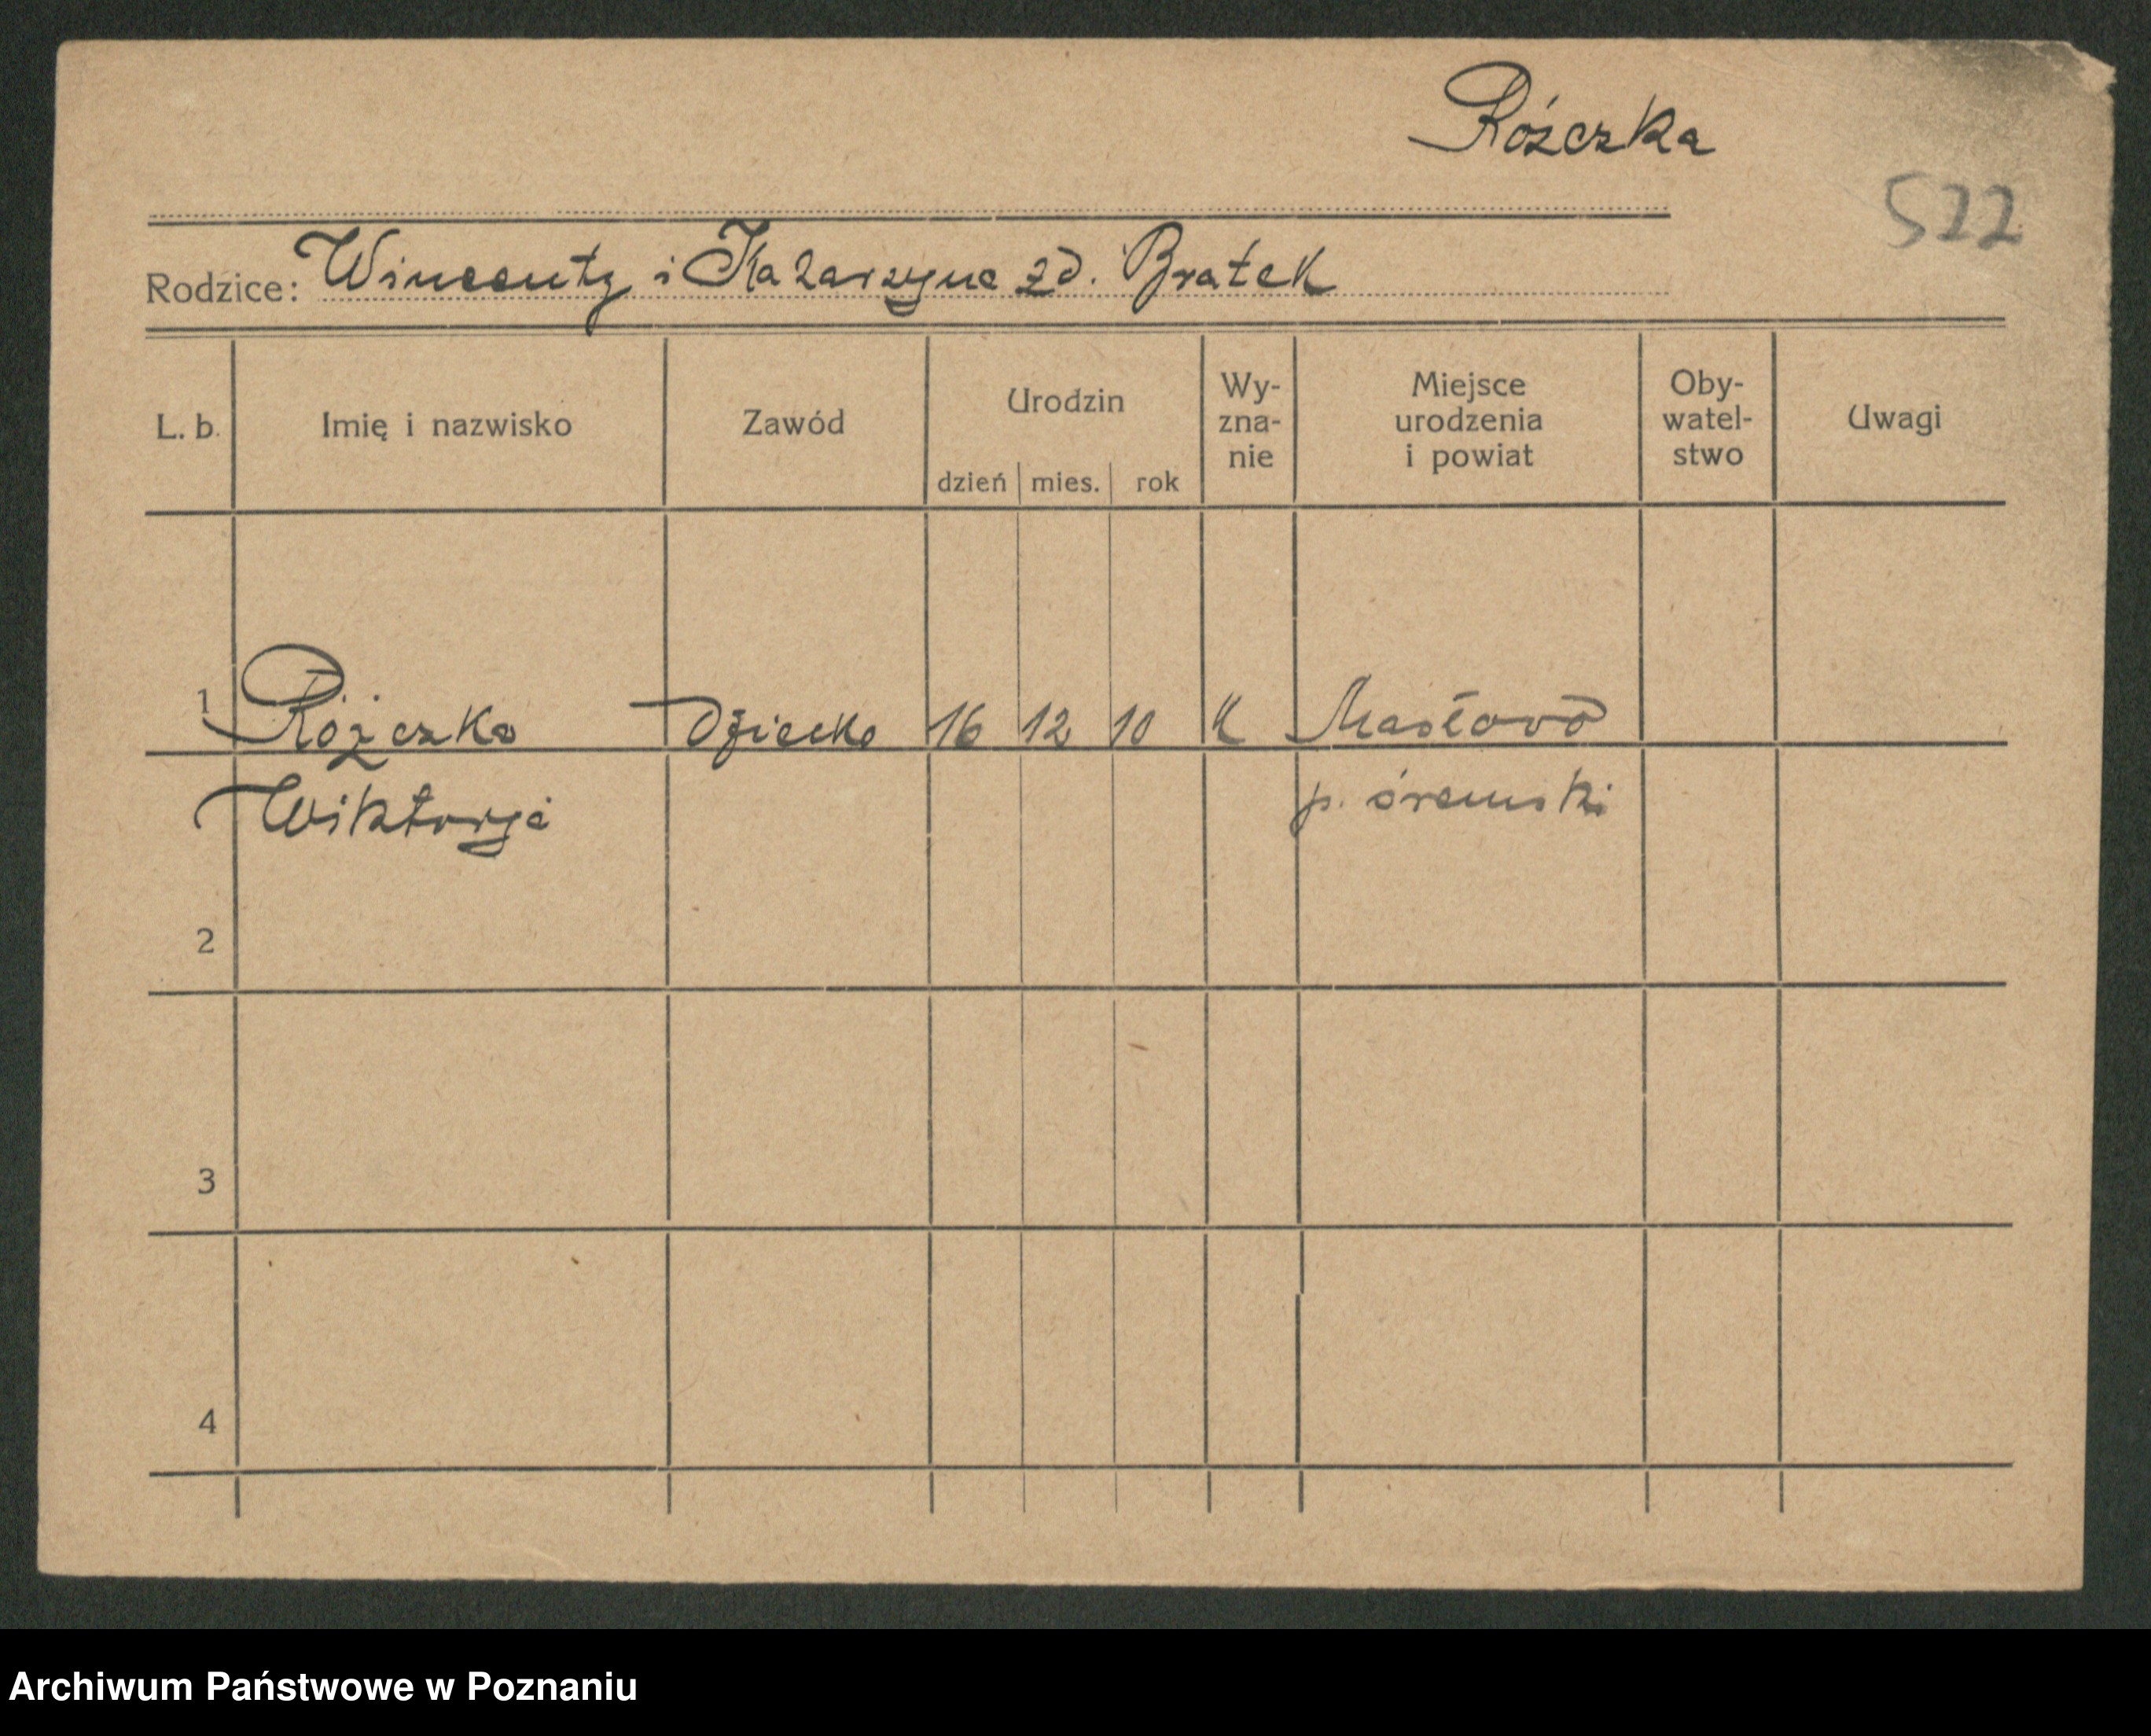 Różczka
522
Rodzice: Wincenty i Katarzyna zd. Bratek
L. b. Imię i nazwisko Zawód Urodzin dzień mies. rok Wy-zna-nie Miejsce urodzenia i powiat Oby-watel-stwo Uwagi
1 Różczka Dziecko 16 12 10 K Masłowo
Wiktorja p. śremski
2
3
4
Archiwum Państwowe w Poznaniu